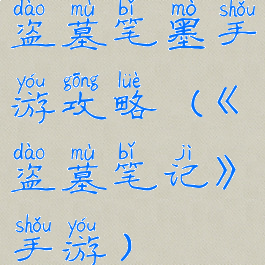 dào mù bǐ mò shǒu
盗墓笔墨手
yóu gōng lüè
游攻略（《
dào mù bǐ jì
盗墓笔记》
shǒu yóu
手游）